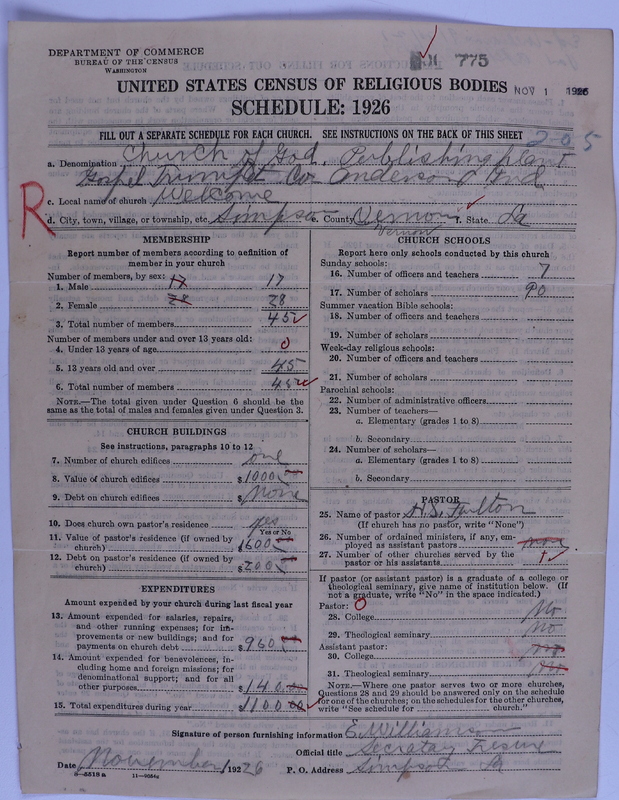 DEPARTMENT OF COMMERCE
BUREAU OF THE CENSUS
WASHINGTON
775
UNITED STATES CENSUS OF RELIGIOUS BODIES
NOV 1 1926
SCHEDULE: 1926
FILL OUT A SEPARATE SCHEDULE FOR EACH CHURCH. SEE INSTRUCTIONS ON THE BACK OF THIS SHEET
205
a. Denomination Church of God, Publishing plant
Gospel Trumpet Co. Anderson, Ind
R
c. Local name of church Welcome
d. City, town, village, or township, etc. Simpson e. County Vernon f. State. La
Vernon
MEMBERSHIP
Report number of members according to definition of
member in your church
Number of members, by sex:
1. Male 17 17
2. Female 28 28
3. Total number of members 45
Number of members under and over 13 years old:
4. Under 13 years of age 0
5. 13 years old and over 45
6. Total number of members 45
NOTE.—The total given under Question 6 should be
same as the total of males and females given under Question 3.
CHURCH BUILDINGS
See instructions, paragraphs 10 to 12
7. Number of church edifices one
8. Value of church edifices $1000
9. Debt on church edifices $ None
10. Does church own pastor's residence yes
Yes or No
11. Value of pastor's residence (if owned by
church) $600
12. Debt on pastor's residence (if owned by
church) $200
EXPENDITURES
Amount expended by your church during last fiscal year
13. Amount expended for salaries, repairs,
and other running expenses; for im-
provements or new buildings; and for
payments on church debt $960
14. Amount expended for benevolences, in-
cluding home and foreign missions; for
denominational support; and for all
other purposes $140.00
15. Total expenditures during year $1100 00
CHURCH SCHOOLS
Report here only schools conducted by this church
Sunday schools:
16. Number of officers and teachers 7
17. Number of scholars 90
Summer vacation Bible schools:
18. Number of officers and teachers
19. Number of scholars
Week-day religious schools:
20. Number of officers and teachers
21. Number of scholars
Parochial schools:
22. Number of administrative officers
23. Number of teachers—
a. Elementary (grades 1 to 8)
b. Secondary
24. Number of scholars—
a. Elementary (grades 1 to 8)
b. Secondary
PASTOR
25. Name of pastor H.S. Fulton
(If church has no pastor, write "None")
26. Number of ordained ministers, if any, em-
ployed as assistant pastors
27. Number of other churches served by the
pastor or his assistants 1
If pastor (or assistant pastor) is a graduate of a college or
theological seminary, give name of institution below. (If
not a graduate, write "No" in the space indicated.)
Pastor: 0
28. College No
29. Theological seminary No
Assistant pastor:
30. College
31. Theological seminary
NOTE.—Where one pastor serves two or more churches,
Questions 28 and 29 should be answered only on the schedule
for one of the churches; on the schedules for the other churches,
write "See schedule for church."
Signature of person furnishing information E. Williams
Official title Secretay
Date November / 1926 P. O. Address Simpson La
8—5518 a 11—9054a